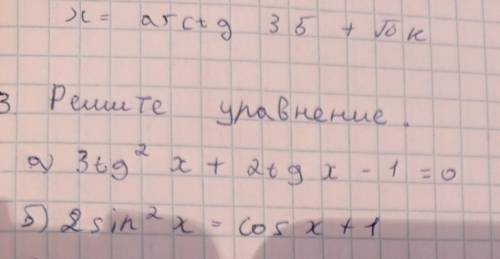 x = arctg 3,5 + πk
3. Решите уравнение.
а) 3tg² x + 2tg x - 1 = 0
б) 2sin² x = cos x + 1